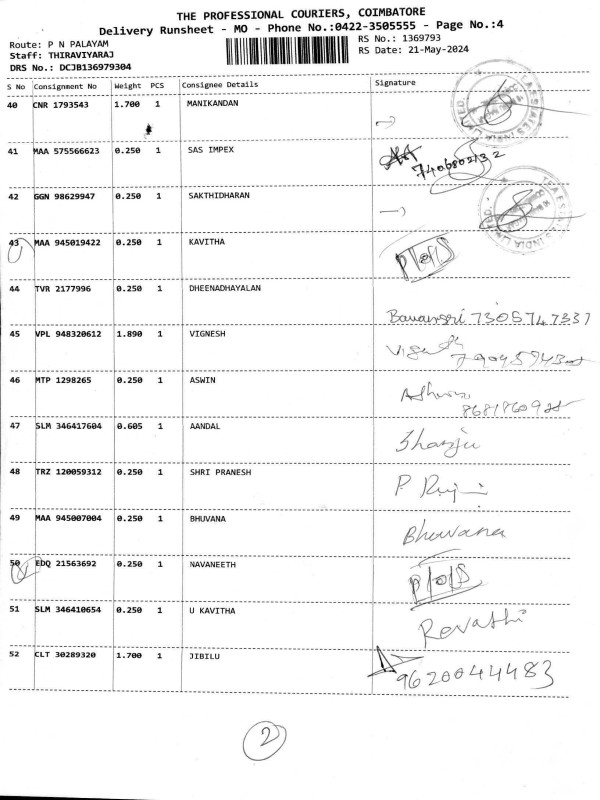 THE PROFESSIONAL COURIERS, COIMBATORE
Delivery Runsheet - MO - Phone No.:0422-3505555 - Page No.:4
Route: P N PALAYAM
RS No.: 1369793
Staff: THIRAVIYARAJ
RS Date: 21-May-2024
DRS No.: DCJB136979304
S No Consignment No Weight PCS Consignee Details Signature
40 CNR 1793543 1.700 1 MANIKANDAN
41 MAA 575566623 0.250 1 SAS IMPEX
7406802132
42 GGN 98629947 0.250 1 SAKTHIDHARAN
43 MAA 945019422 0.250 1 KAVITHA
44 TVR 2177996 0.250 1 DHEENADHAYALAN
7305747337
45 VPL 948320612 1.890 1 VIGNESH
46 MTP 1298265 0.250 1 ASWIN
47 SLM 346417604 0.605 1 AANDAL
48 TRZ 120059312 0.250 1 SHRI PRANESH
49 MAA 945007004 0.250 1 BHUVANA Bhuvana
50 EDQ 21563692 0.250 1 NAVANEETH
51 SLM 346410654 0.250 1 U KAVITHA Revathi
52 CLT 30289320 1.700 1 JIBILU
9620044483
2